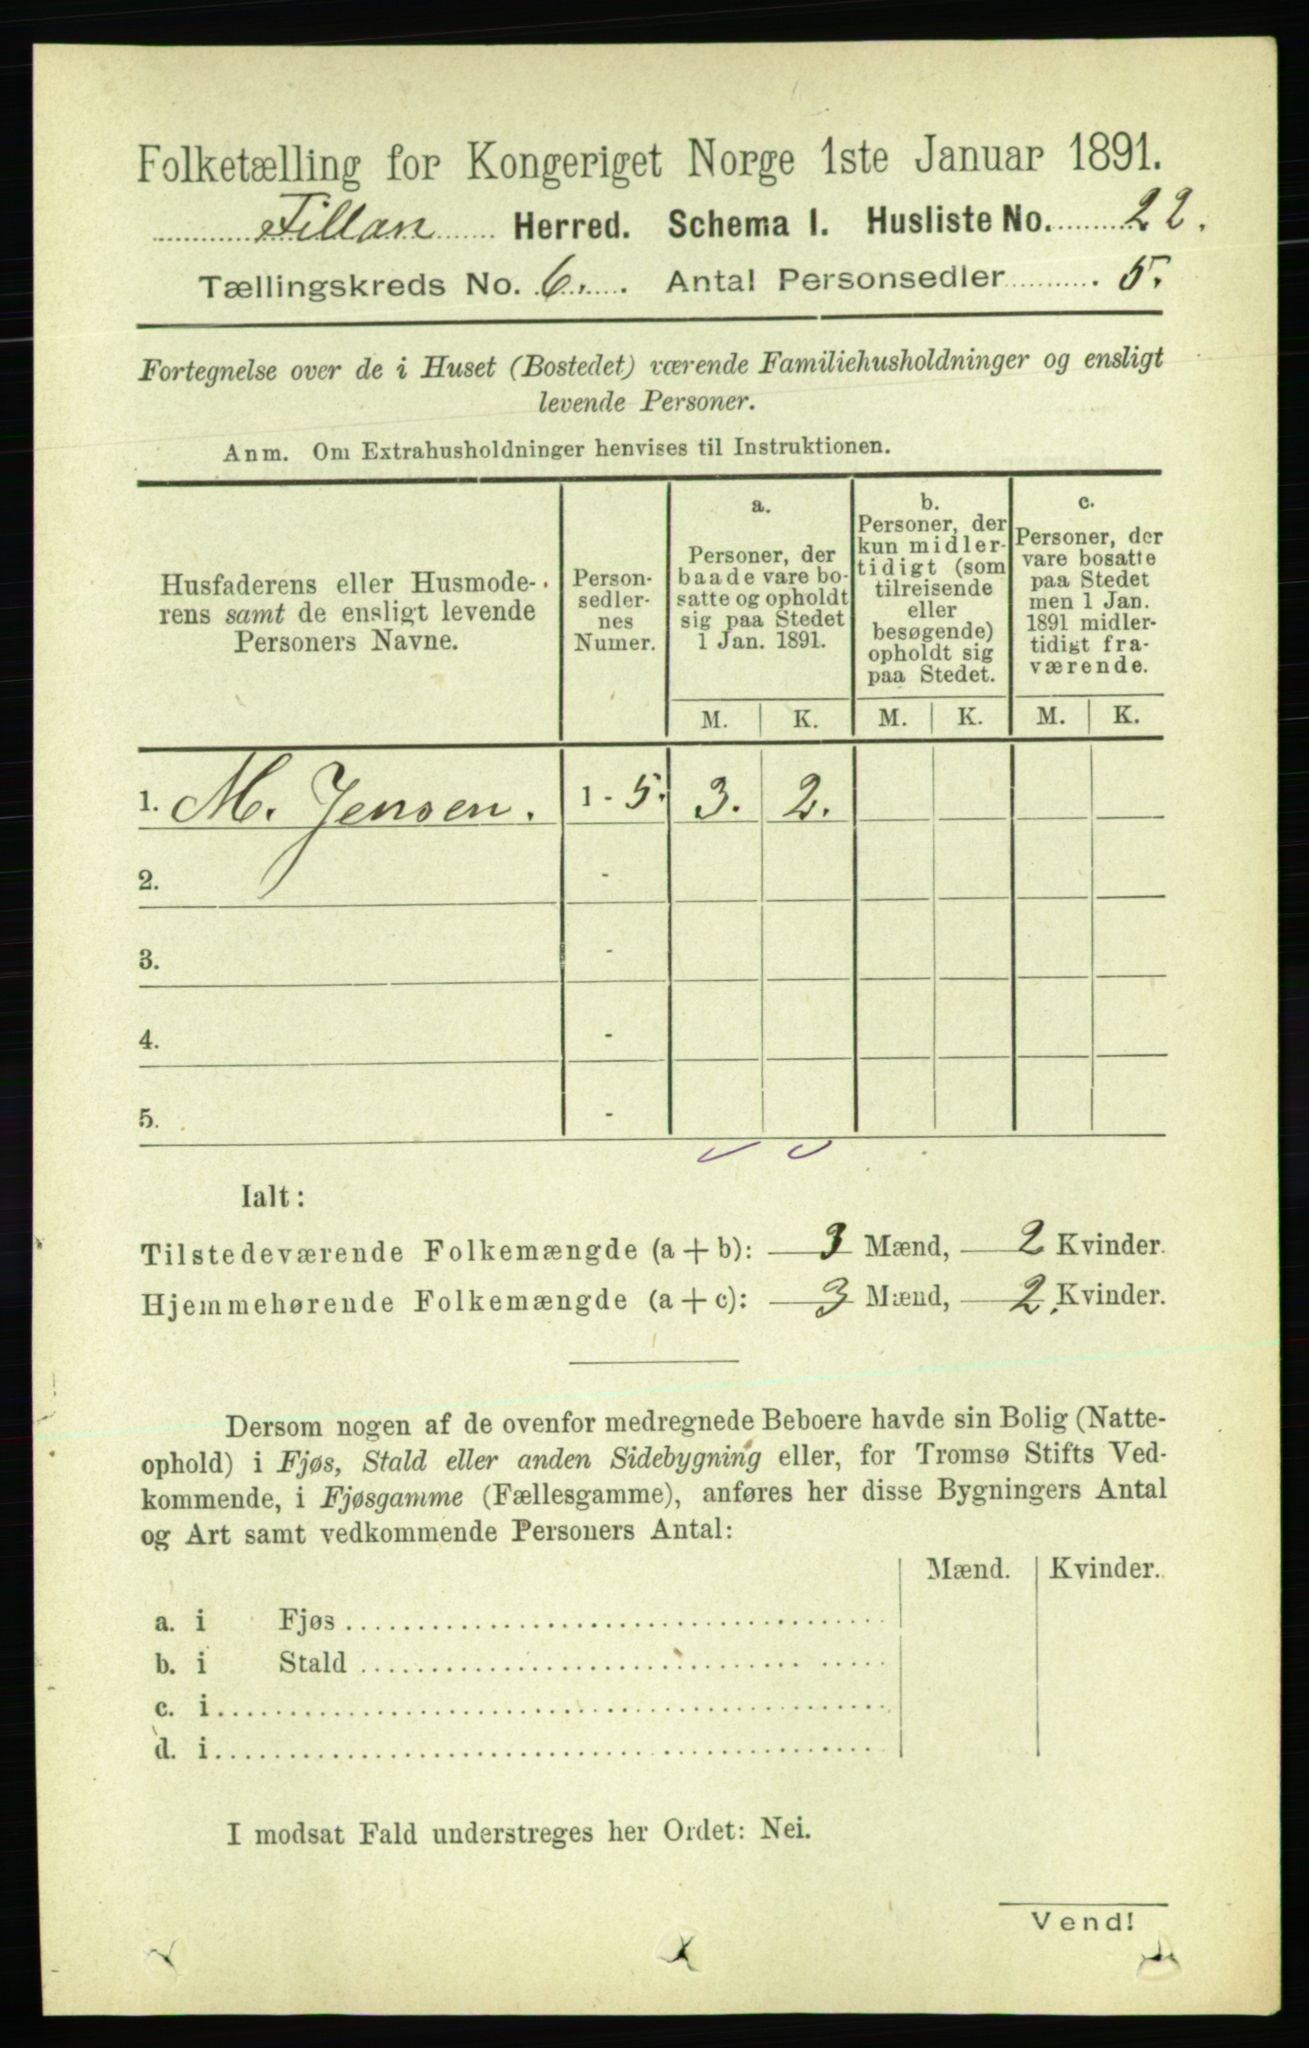 Folketælling for Kongeriget Norge 1ste Januar 1891.
Fillan Herred. Schema I. Husliste No. 22.
Tællingskreds No. 6. Antal Personsedler 5.
Fortegnelse over de i Huset (Bostedet) værende Familiehusholdninger og ensligt
levende Personer.
Anm. Om Extrahusholdninger henvises til Instruktionen.
Husfaderens eller Husmode-
rens samt de ensligt levende
Personers Navne.
Person-
sedler-
nes
Numer.
a.
Personer, der
baade vare bo-
satte og opholdt
sig paa Stedet
1 Jan. 1891.
b.
Personer, der
kun midler-
tidigt (som
tilreisende
eller
besøgende)
opholdt sig
paa Stedet.
c.
Personer, der
vare bosatte
paa Stedet
men 1 Jan.
1891 midler-
tidigt fra-
værende.
M. K. M. K. M. K.
1. M. Jensen. 1 - 5. 3. 2.
2. -
3. -
4. -
5. -
Ialt:
Tilstedeværende Folkemængde (a + b): 3 Mænd, 2 Kvinder.
Hjemmehørende Folkemængde (a + c): 3 Mænd, 2 Kvinder.
Dersom nogen af de ovenfor medregnede Beboere havde sin Bolig (Natte-
ophold) i Fjøs, Stald eller anden Sidebygning eller, for Tromsø Stifts Ved-
kommende, i Fjøsgamme (Fællesgamme), anføres her disse Bygningers Antal
og Art samt vedkommende Personers Antal:
Mænd. Kvinder.
a. i Fjøs
b. i Stald
c. i
d. i
I modsat Fald understreges her Ordet: Nei.
Vend!